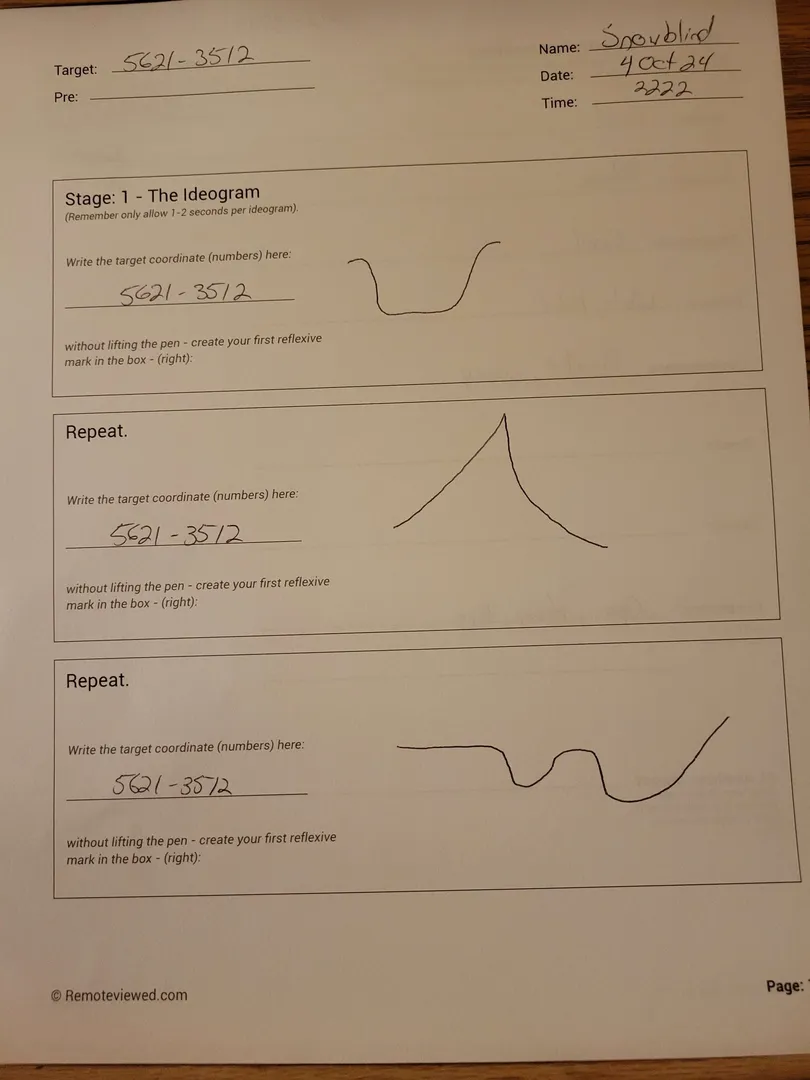 Target: 5621-3512
Pre:
Name: Snowblind
Date: 4 Oct 24
Time: 2222
Stage: 1 - The Ideogram
(Remember only allow 1-2 seconds per ideogram).
Write the target coordinate (numbers) here:
5621-3512
without lifting the pen - create your first reflexive
mark in the box - (right):
Repeat.
Write the target coordinate (numbers) here:
5621-3512
without lifting the pen - create your first reflexive
mark in the box - (right):
Repeat.
Write the target coordinate (numbers) here:
5621-3512
without lifting the pen - create your first reflexive
mark in the box - (right):
© Remoteviewed.com
Page: